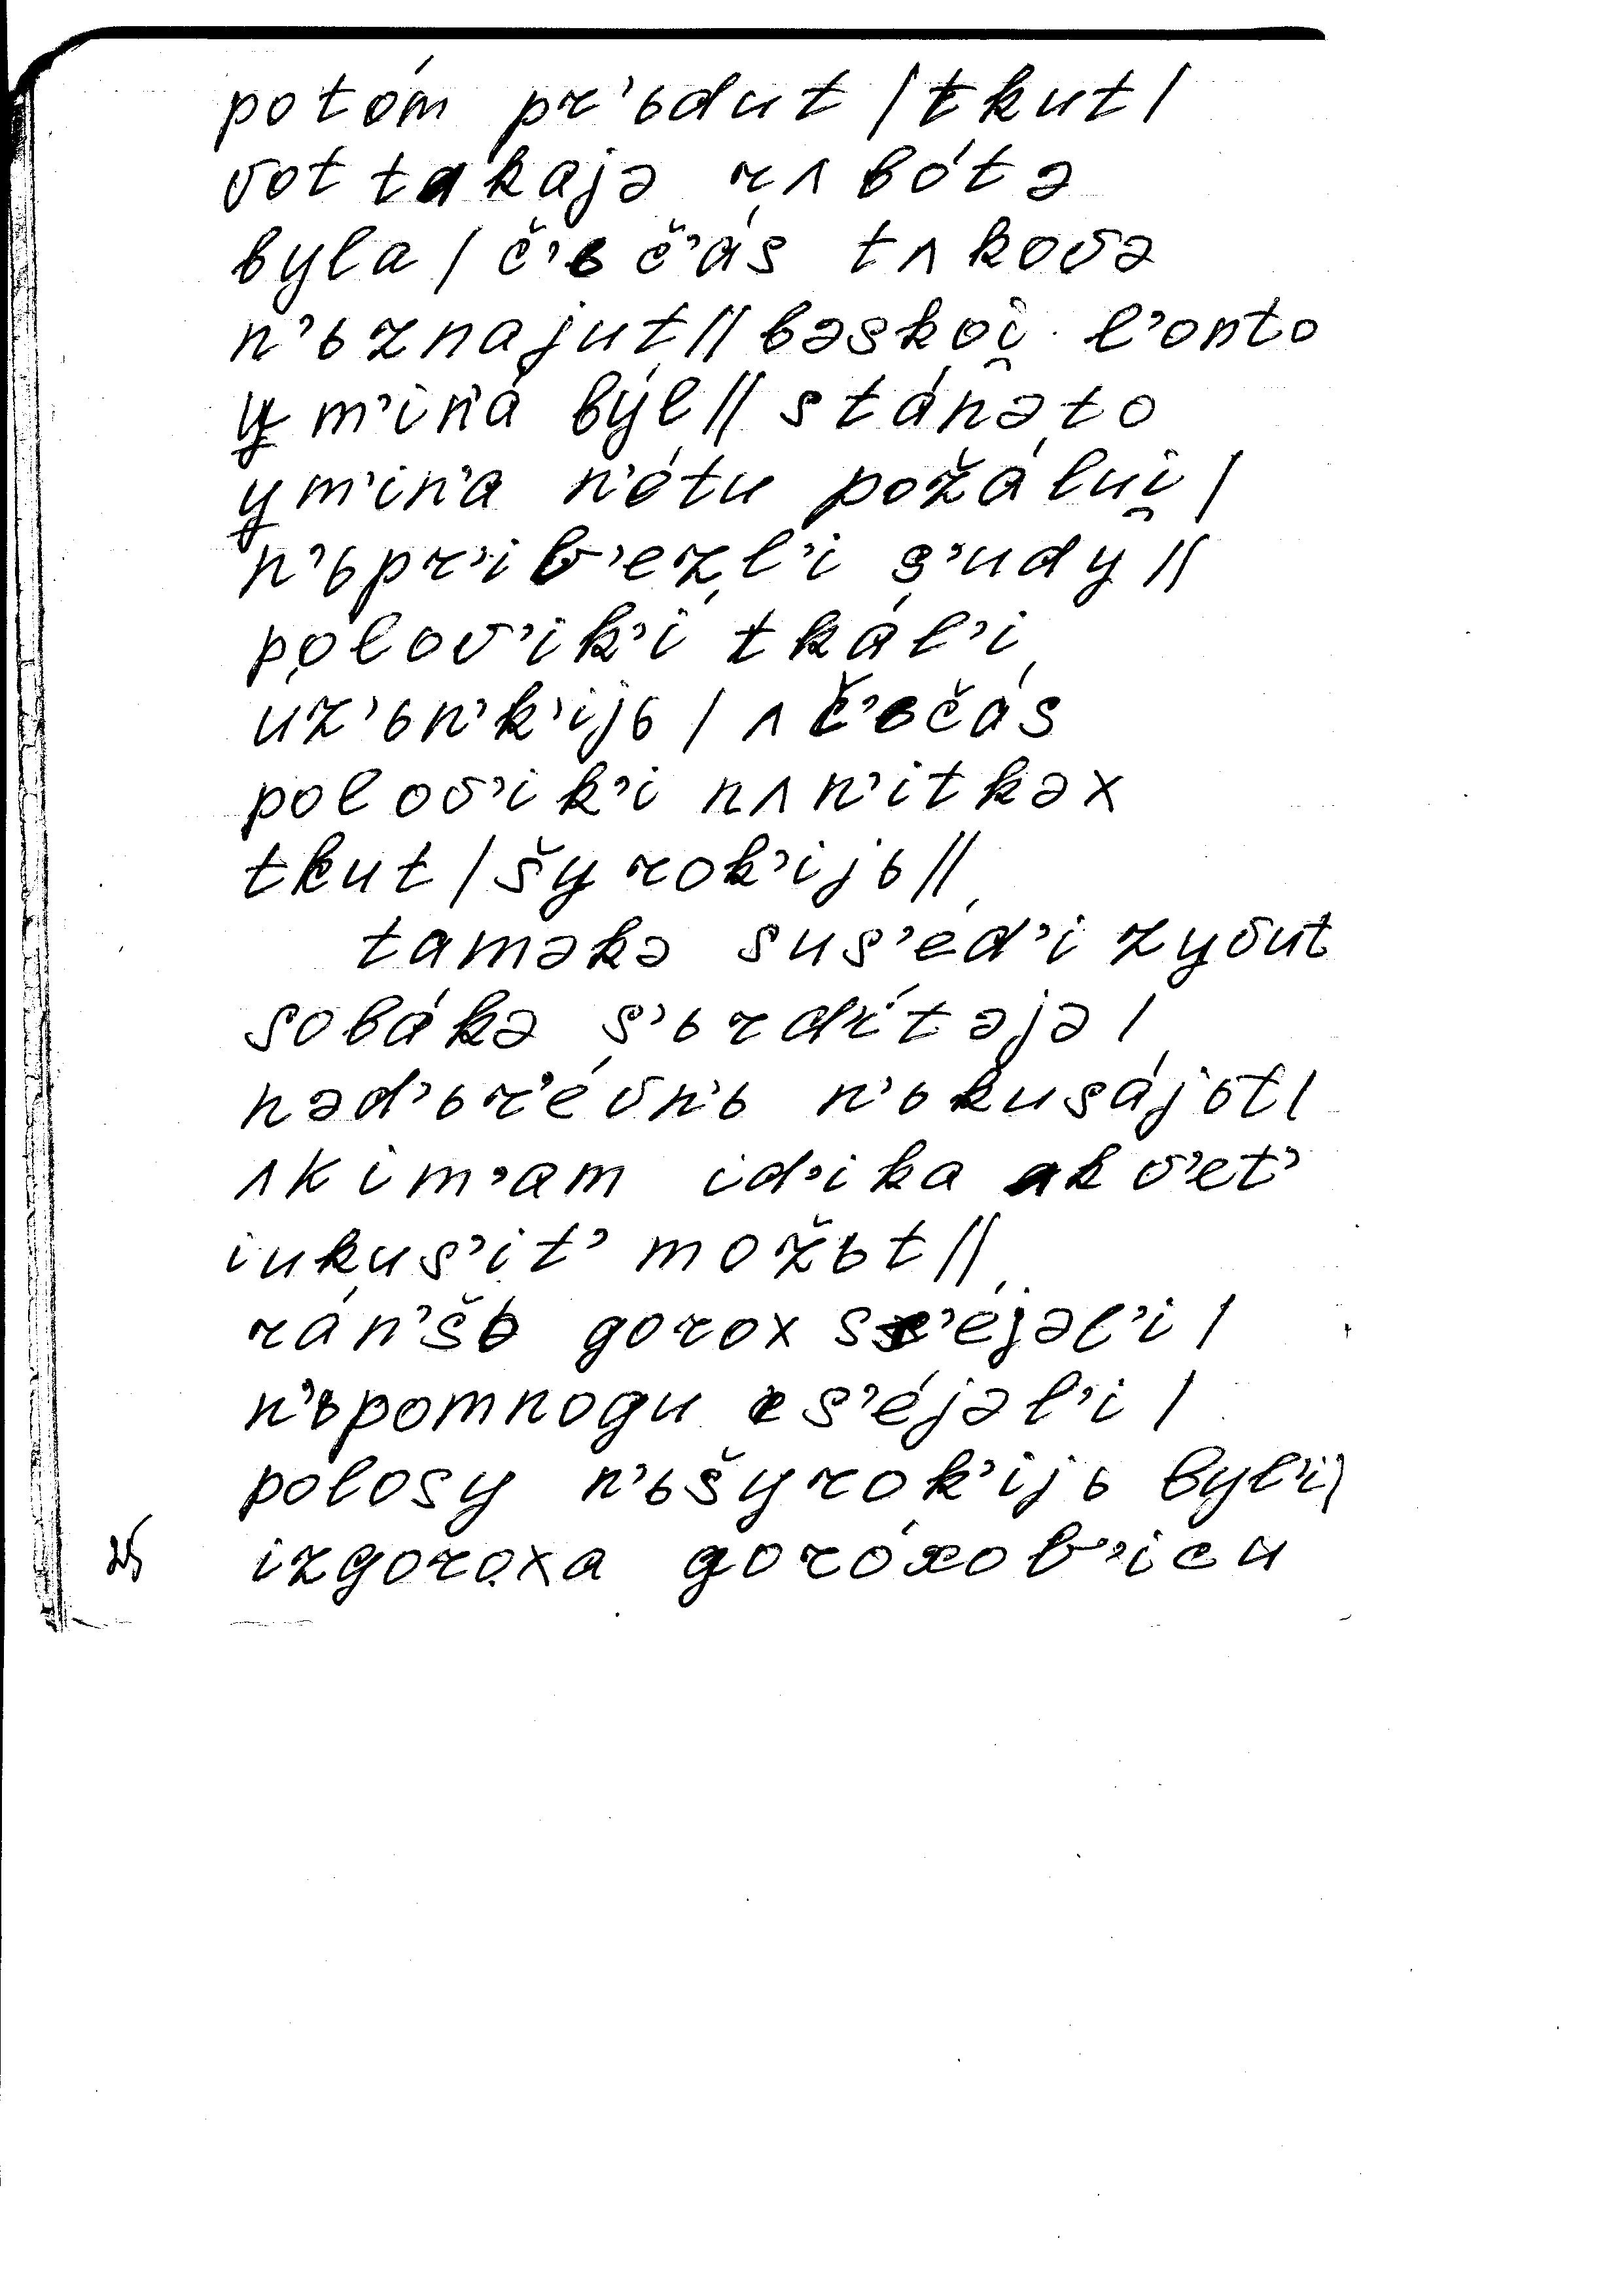 potóm pr’ьdut / tkut /
vot takajə rʌbótə
byla / č’ьč’ás tʌkovə
n’ьznajut // bəskoi̯ l’onto
y m’in’á býl // stánəto
y m’in’a n’étu požálui̯ /
n’ьpr’ib’ezl’i s’udy //
polov’ik’i tkál’i
úz’ьn’k’ijь / ʌ č’ьčás
polov’ik’i nʌn’itkəx
tkut / šyrok’ijь //
taməkə sus’éd’i zyvut
sobákə s’ьrd’ítəjə /
nəd’ьr’évn’ь n’ькusájьt /
ʌkim’am id’ika ak v’et’
iukus’it’ možьt //
rán’šь gorox s’éjəl’i /
n’ьpomnogu s’éjəl’i /
polosy n’ьšyrok’ijь byl’i /
izgoroxa goróxob’icu
25